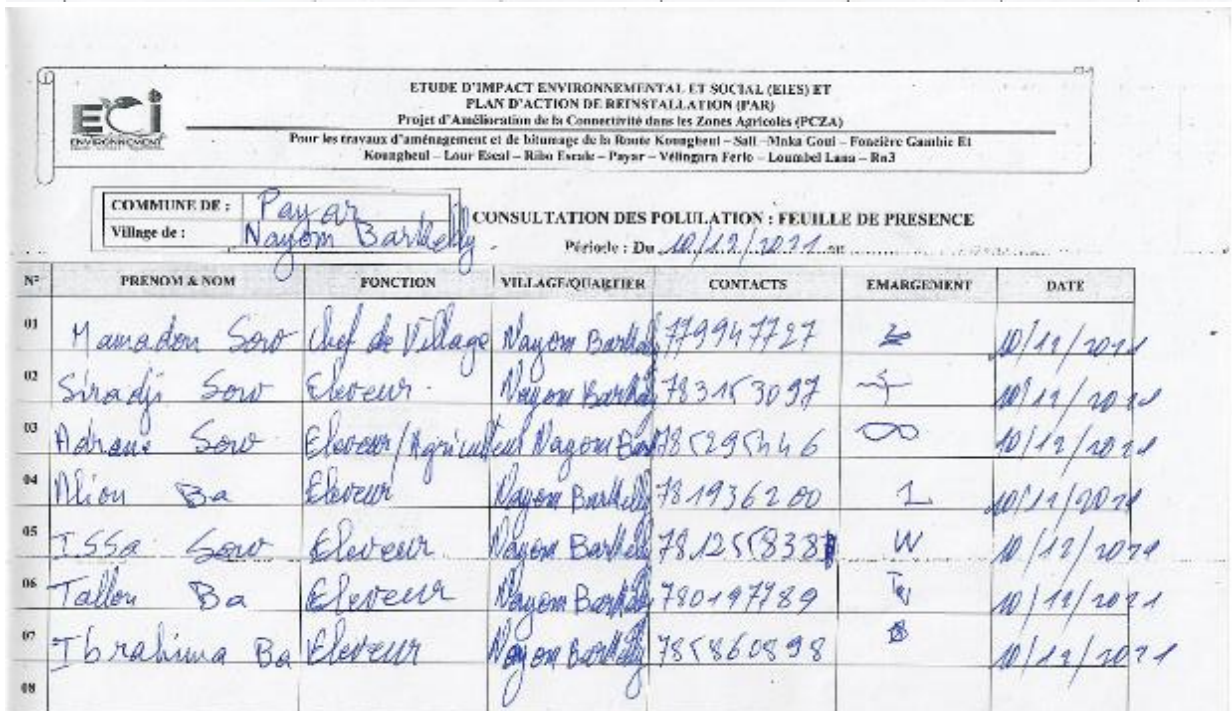 ECi
ENVIRONNEMENT
ETUDE D'IMPACT ENVIRONNEMENTAL ET SOCIAL (EIES) ET
PLAN D'ACTION DE REINSTALLATION (PAR)
Projet d'Amélioration de la Connectivité dans les Zones Agricoles (PCZA)
Pour les travaux d'aménagement et de bitumage de la Route Koungheul – Sali –Maka Goui – Foncière Gambie Et
Koungheul – Lour Escal – Ribo Escale – Payar – Vélingara Ferlo – Loumbel Lana – Rn3
COMMUNE DE : Payar
Village de : Nayom Barkelly
CONSULTATION DES POLULATION : FEUILLE DE PRESENCE
Période : Du 10/12/2021 au
N° PRENOM & NOM FONCTION VILLAGE/QUARTIER CONTACTS EMARGEMENT DATE
01 Mamadou Sow Chef de Village Nayom Barkelly 779947727 10/12/2021
02 Siradji Sow Eleveur Nayom Barkelly 783153097 10/12/2021
03 Adrane Sow Eleveur/Agriculteur Nayom Bar 785295446 10/12/2021
04 Aliou Ba Eleveur Nayom Barkelly 781936200 10/12/2021
05 Issa Sow Eleveur Nayom Barkelly 781255838 W 10/12/2021
06 Tallou Ba Eleveur Nayom Barkelly 780197789 10/12/2021
07 Ibrahima Ba Eleveur Nayom Barkelly 785860898 10/12/2021
08